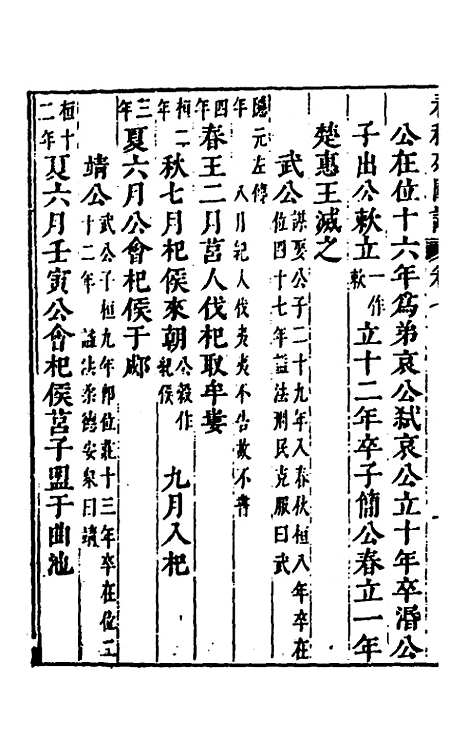 公在位十六年為弟哀公弑哀公立十年卒湣公
子出公敕立一作敕立十二年卒子簡公春立一年
楚惠王滅之
武公謀娶公子二十九年入春秋桓八年卒在位四十七年諡法刑民克服曰武
隱元年左傳八月紀人伐夷夷不告故不書
四年春王二月莒人伐杞取牟婁
桓二年秋七月杞侯來朝公穀作紀侯九月入杞
三年夏六月公會杞侯于郕
靖公武公子桓九年即位莊十三年卒在位二十二年諡法柔德安衆曰靖
桓十二年夏六月壬寅公會杞侯莒子盟于曲池